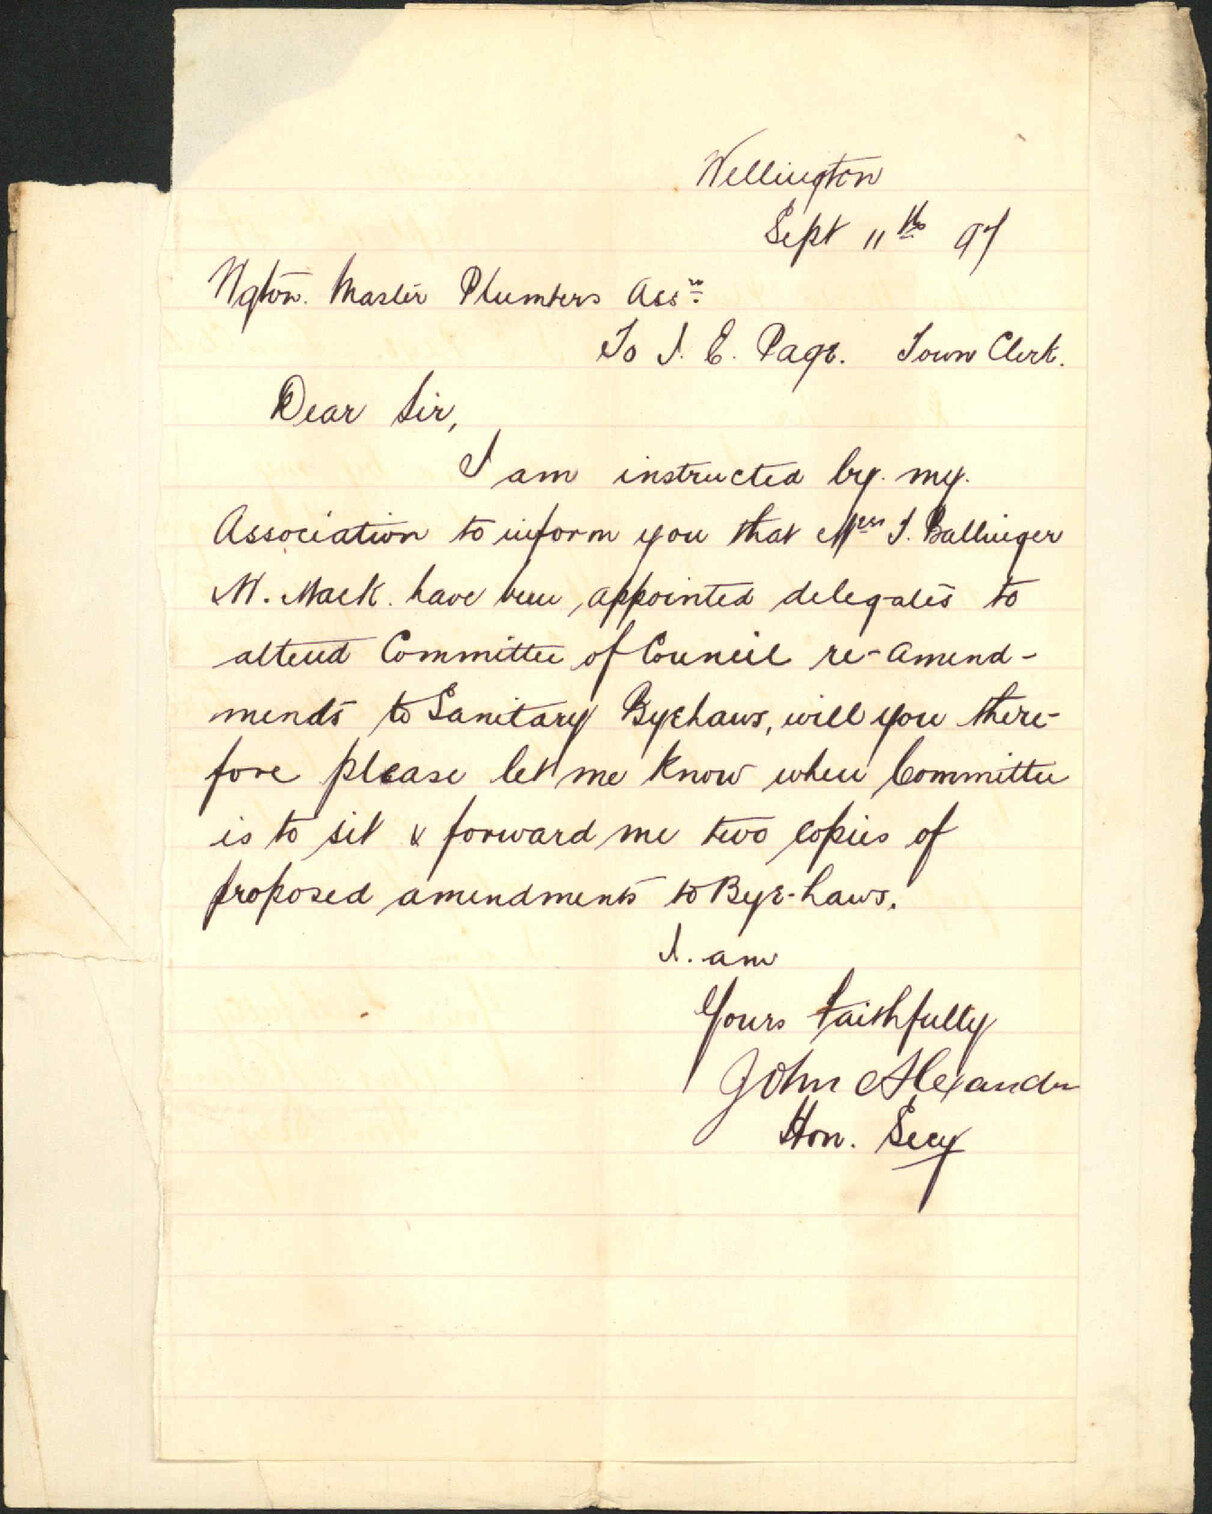 Wellington
Sept 11th 97
Wgton. Master Plumbers Assn
To J. E. Page. Town Clerk.
Dear Sir,
I am instructed by my
Association to inform you that Messrs T. Ballinger
W. Mack. have been appointed delegates to
attend Committee of Council re-amend-
ments to Sanitary Bye Laws, will you there-
fore please let me know when Committee
is to sit & forward me two copies of
proposed amendments to Bye-Laws.
I. am
Yours faithfully
John Alexander
Hon. Secy